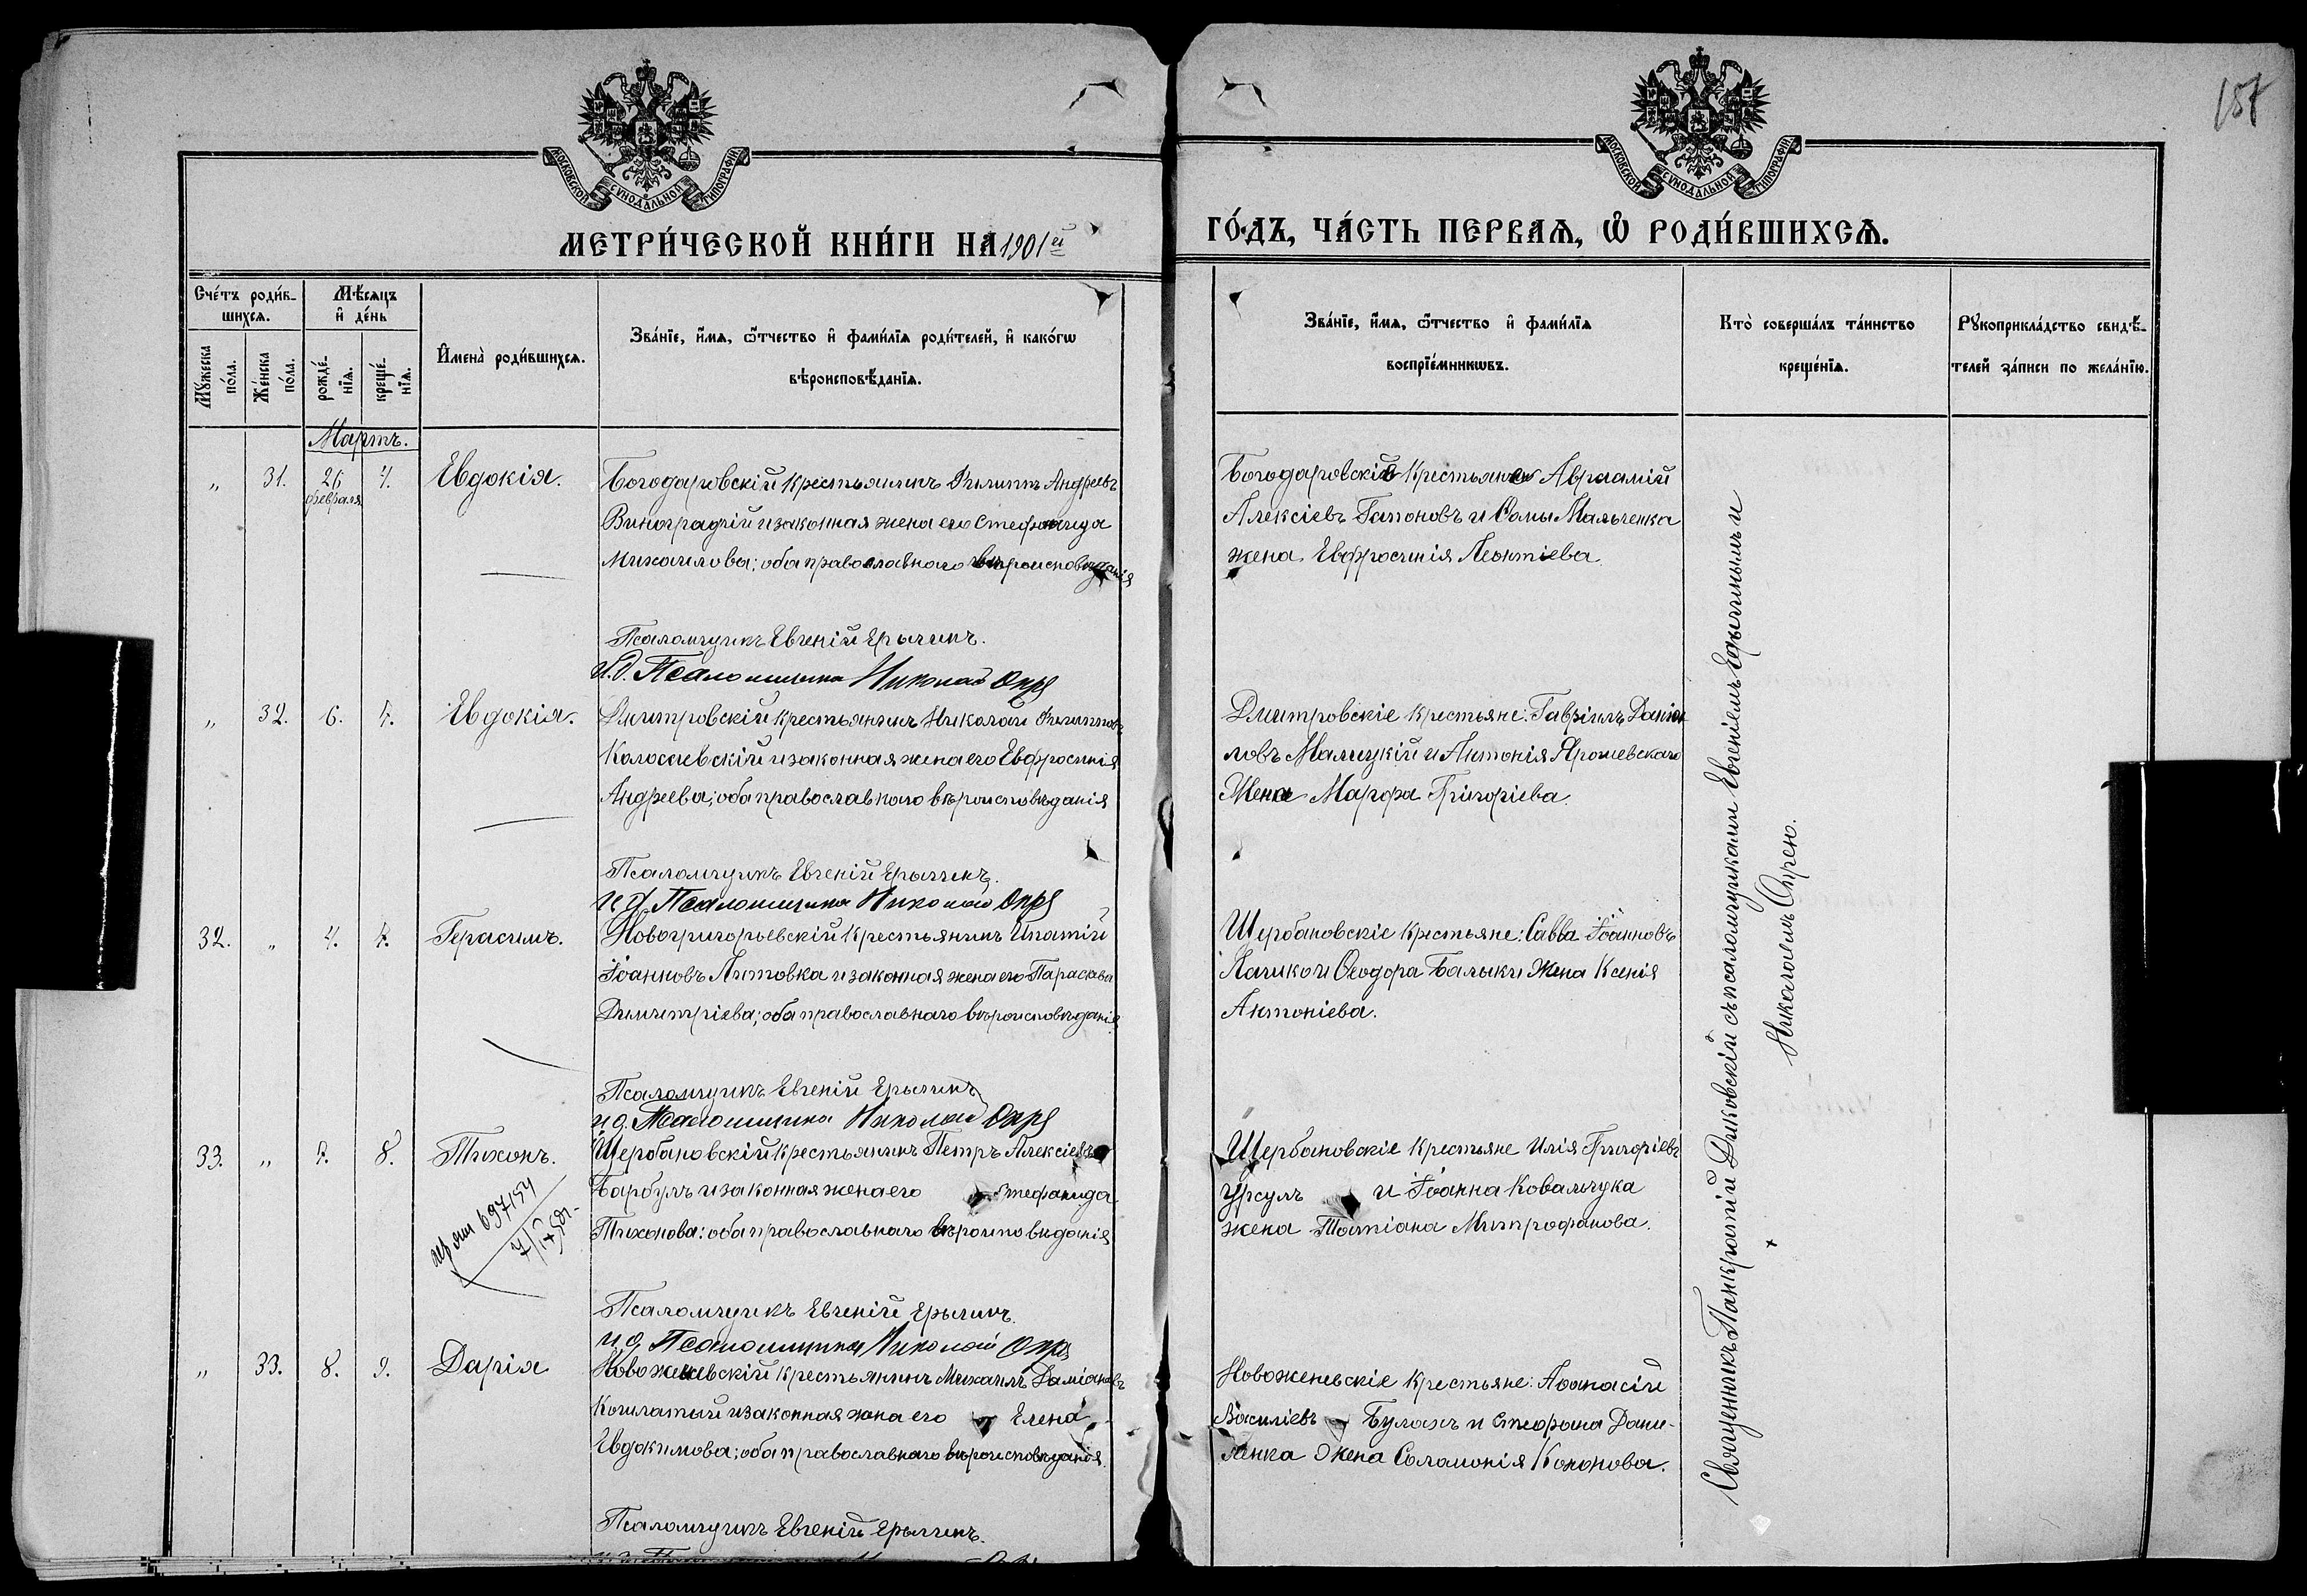 157
МОСКОВСКОЙ СУНОДАЛЬНОЙ ТИПОГРАФІИ
МОСКОВСКОЙ СУНОДАЛЬНОЙ ТИПОГРАФІИ
МЕТРИ́ЧЕСКОЙ КНИ́ГИ НА 1901ей
ГО́ДЪ, ЧА́СТЬ ПЕРВАЯ, Ѡ҆ РОДИ́ВШИХСЯ.
Сче́тъ роди́в-
шихся.
Мꙋ́жеска по́ла.
Же́нска по́ла.
Мѣ́сяцъ
и҆ де́нь
рожде́-
нїя.
креще́-
нїя.
И҆мена̀ роди́вшихся.
Зва́нїе, и҆́мя, ѻ҆́тчество и҆ фами́лїя роди́телей, и҆ како́гѡ
вѣроисповѣ́данїя.
Зва́нїе, и҆́мя, ѻ҆́тчество и҆ фами́лїя
воспрїе́мникѡвъ.
Кто̀ соверша́лъ та́инство
креще́нїя.
Рꙋкоприкла́дство свидѣ́-
телей за́писи по жела́нїю.
Мартъ.
„ 31. 26 февраля 4. Евдокія.
Богодаровскій крестьянинъ Филиппъ Андреевъ
Виноградчій и законная жена его Стефанида
Михаилова; оба православнаго вѣроисповѣданія
Псаломщикъ Евгеній Ерыгинъ.
И.д. Псаломщика Николай Опря
Богодаровскіе крестьяне Авраамій
Алексіевъ Гапоновъ и Ѳомы Мальченка
жена Евфросинія Леонтіева.
„ 32. 6. 7. Евдокія.
Дмитровскій крестьянинъ Николай Филипповъ
Колосаевскій и законная жена его Евфросинія
Андреева; оба православнаго вѣроисповѣданія
Псаломщикъ Евгеній Ерыгинъ.
и д. Псаломщика Николай Опря
Дмитровскіе крестьяне: Гавріилъ Даніи
ловъ Малицкій и Антонія Ярошевскаго
Жена Марфа Григоріева.
32. „ 4. 7. Герасимъ.
Новогригорьевскій крестьянинъ Ипатій
Іоанновъ Литовка и законная жена его Параскева
Димитріева; оба православнаго вѣроисповѣданія
Псаломщикъ Евгеній Ерыгинъ
и д. Псаломщика Николай Опря
Щербановскіе крестьяне: Савва Іоанновъ
и Ѳеодора Балыки жена Ксенія
Антоніева.
33. „ 7. 8. Тихонъ.
697154
Щербановскій крестьянинъ Петръ Алексіевъ
Барбулъ и законная жена его Стефанида
Тихонова: оба православнаго вѣроисповѣданія
Псаломщикъ Евгеній Ерыгинъ.
и.д. Псаломщика Николай Опря
Щербановскіе крестьяне Илія Григоріевъ
Урсулъ и Іоанна Ковальчука
жена Татіана Митрофанова.
„ 33. 8. 9. Дарія
Новоженевскій крестьянинъ Михаилъ Даміановъ
Кошлатый и законная жена его Елена
Евдокимова; оба православнаго вѣроисповѣданія.
Псаломщикъ Евгеній Ерыгинъ.
Новоженевскіе крестьяне: Аѳанасій
Василіевъ Булахъ и Стефана Дани-
ленка Жена Соломонія Кононова.
Священникъ Панкратій Диковскій съ псаломщиками Евгеніемъ Ерыгинымъ и
Николаемъ Опрею.